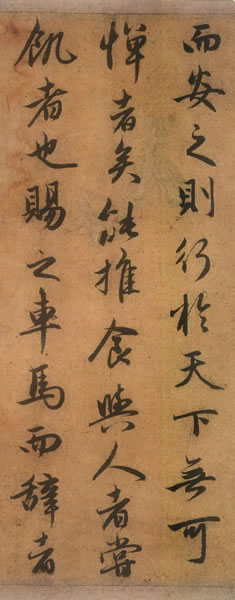 而安之則行於天下無可
憚者矣能推食與人者嘗
飢者也賜之車馬而辭者